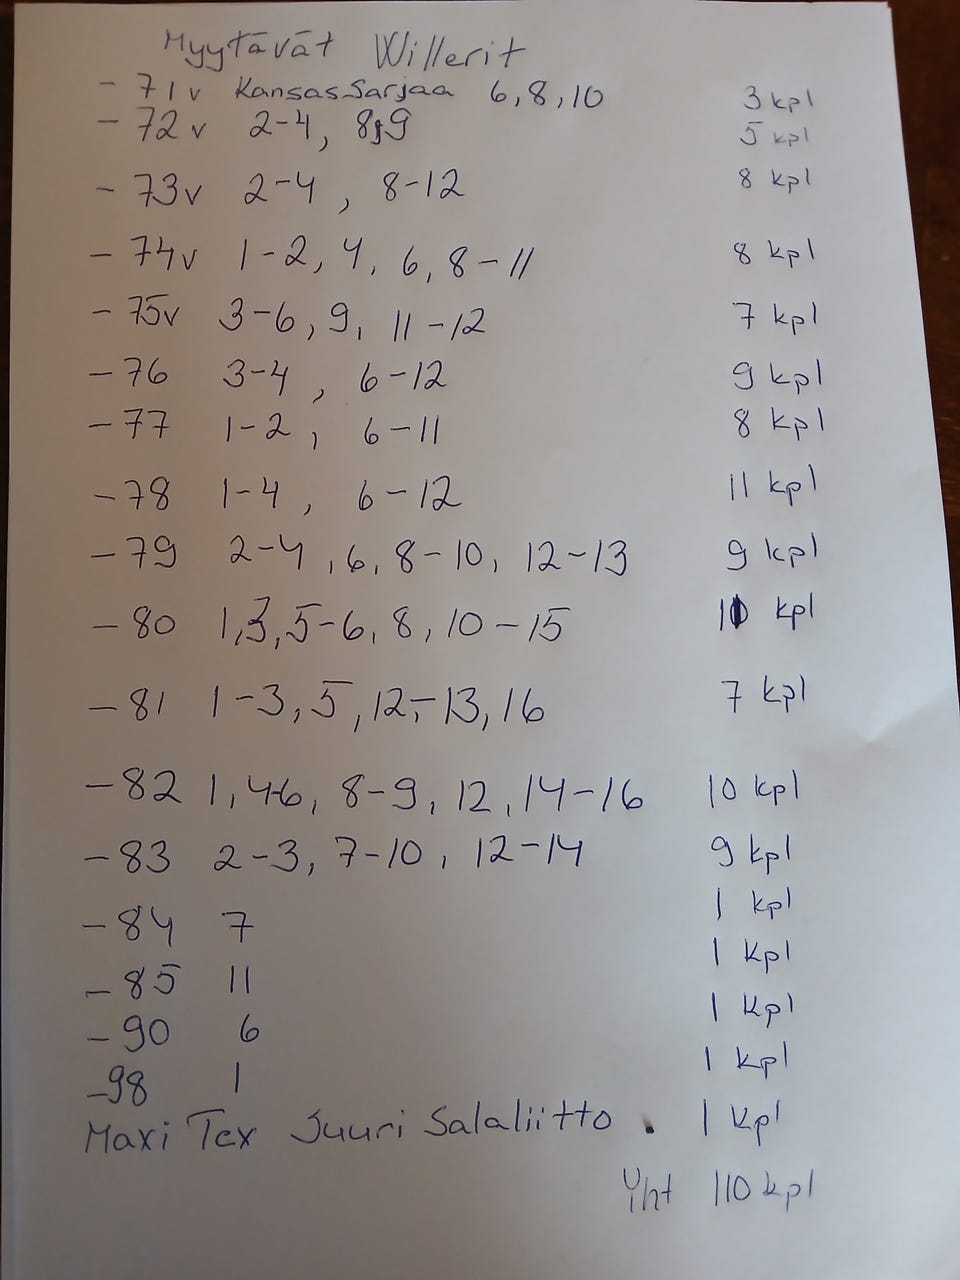 Myytävät Willerit
- 71v Kansas Sarjaa 6, 8, 10 3 kpl
- 72v 2-4, 8,9 5 kpl
- 73v 2-4, 8-12 8 kpl
- 74v 1-2, 4, 6, 8-11 8 kpl
- 75v 3-6, 9, 11-12 7 kpl
- 76 3-4, 6-12 9 kpl
- 77 1-2, 6-11 8 kpl
- 78 1-4, 6-12 11 kpl
- 79 2-4, 6, 8-10, 12-13 9 kpl
- 80 1,3,5-6, 8, 10-15 11 kpl
- 81 1-3, 5, 12-13, 16 7 kpl
- 82 1, 4-6, 8-9, 12, 14-16 10 kpl
- 83 2-3, 7-10, 12-14 9 kpl
- 84 7 1 kpl
- 85 11 1 kpl
- 90 6 1 kpl
-98 1 1 kpl
Maxi Tex Juuri Salaliitto. 1 kpl
Yht 110 kpl